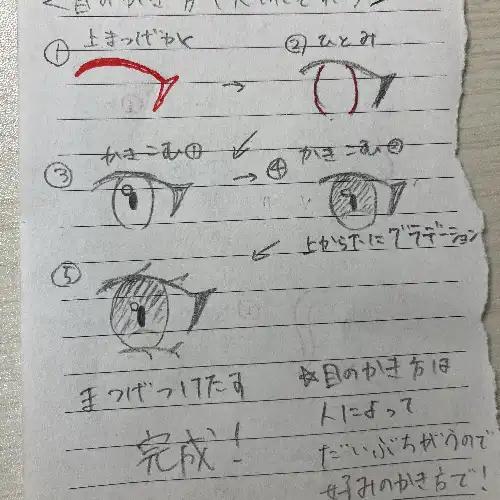 ① 上まつげかく
② ひとみ
③ かきこむ①
④ かきこむ②
上から下にグラデーション
⑤
まつげつけたす
完成!
☆目のかき方は
人によって
だいぶちがうので
好みのかき方で!